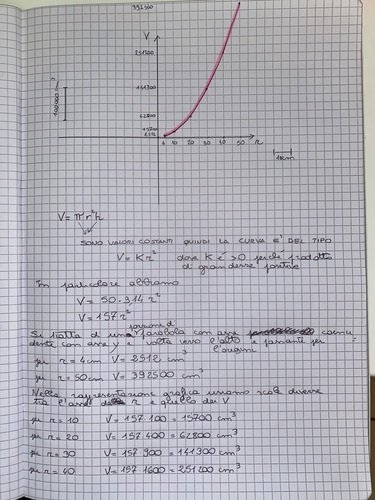 392500
V
251200
141300
62800
15700
2512
100000 cm³
4 10 20 30 40 50 r
10cm
V = πr²h
SONO VALORI COSTANTI QUINDI LA CURVA E' DEL TIPO
V = Kr² dove K è >0 perché prodotto
di grandezze positive
In particolare abbiamo
V = 50·3,14 r²
V = 157 r²
porzione di
Si tratta di una parabola con asse coinci
dente con asse y e volta verso l'alto e passante per
l'origine
per r = 4cm V = 2512 cm³
per r = 50cm V = 392500 cm³
Nella rappresentazione grafica usiamo scale diverse
tra l'asse r e quello dei V
per r = 10 V = 157·100 = 15700 cm³
per r = 20 V = 157·400 = 62800 cm³
per r = 30 V = 157·900 = 141300 cm³
per r = 40 V = 157·1600 = 251200 cm³